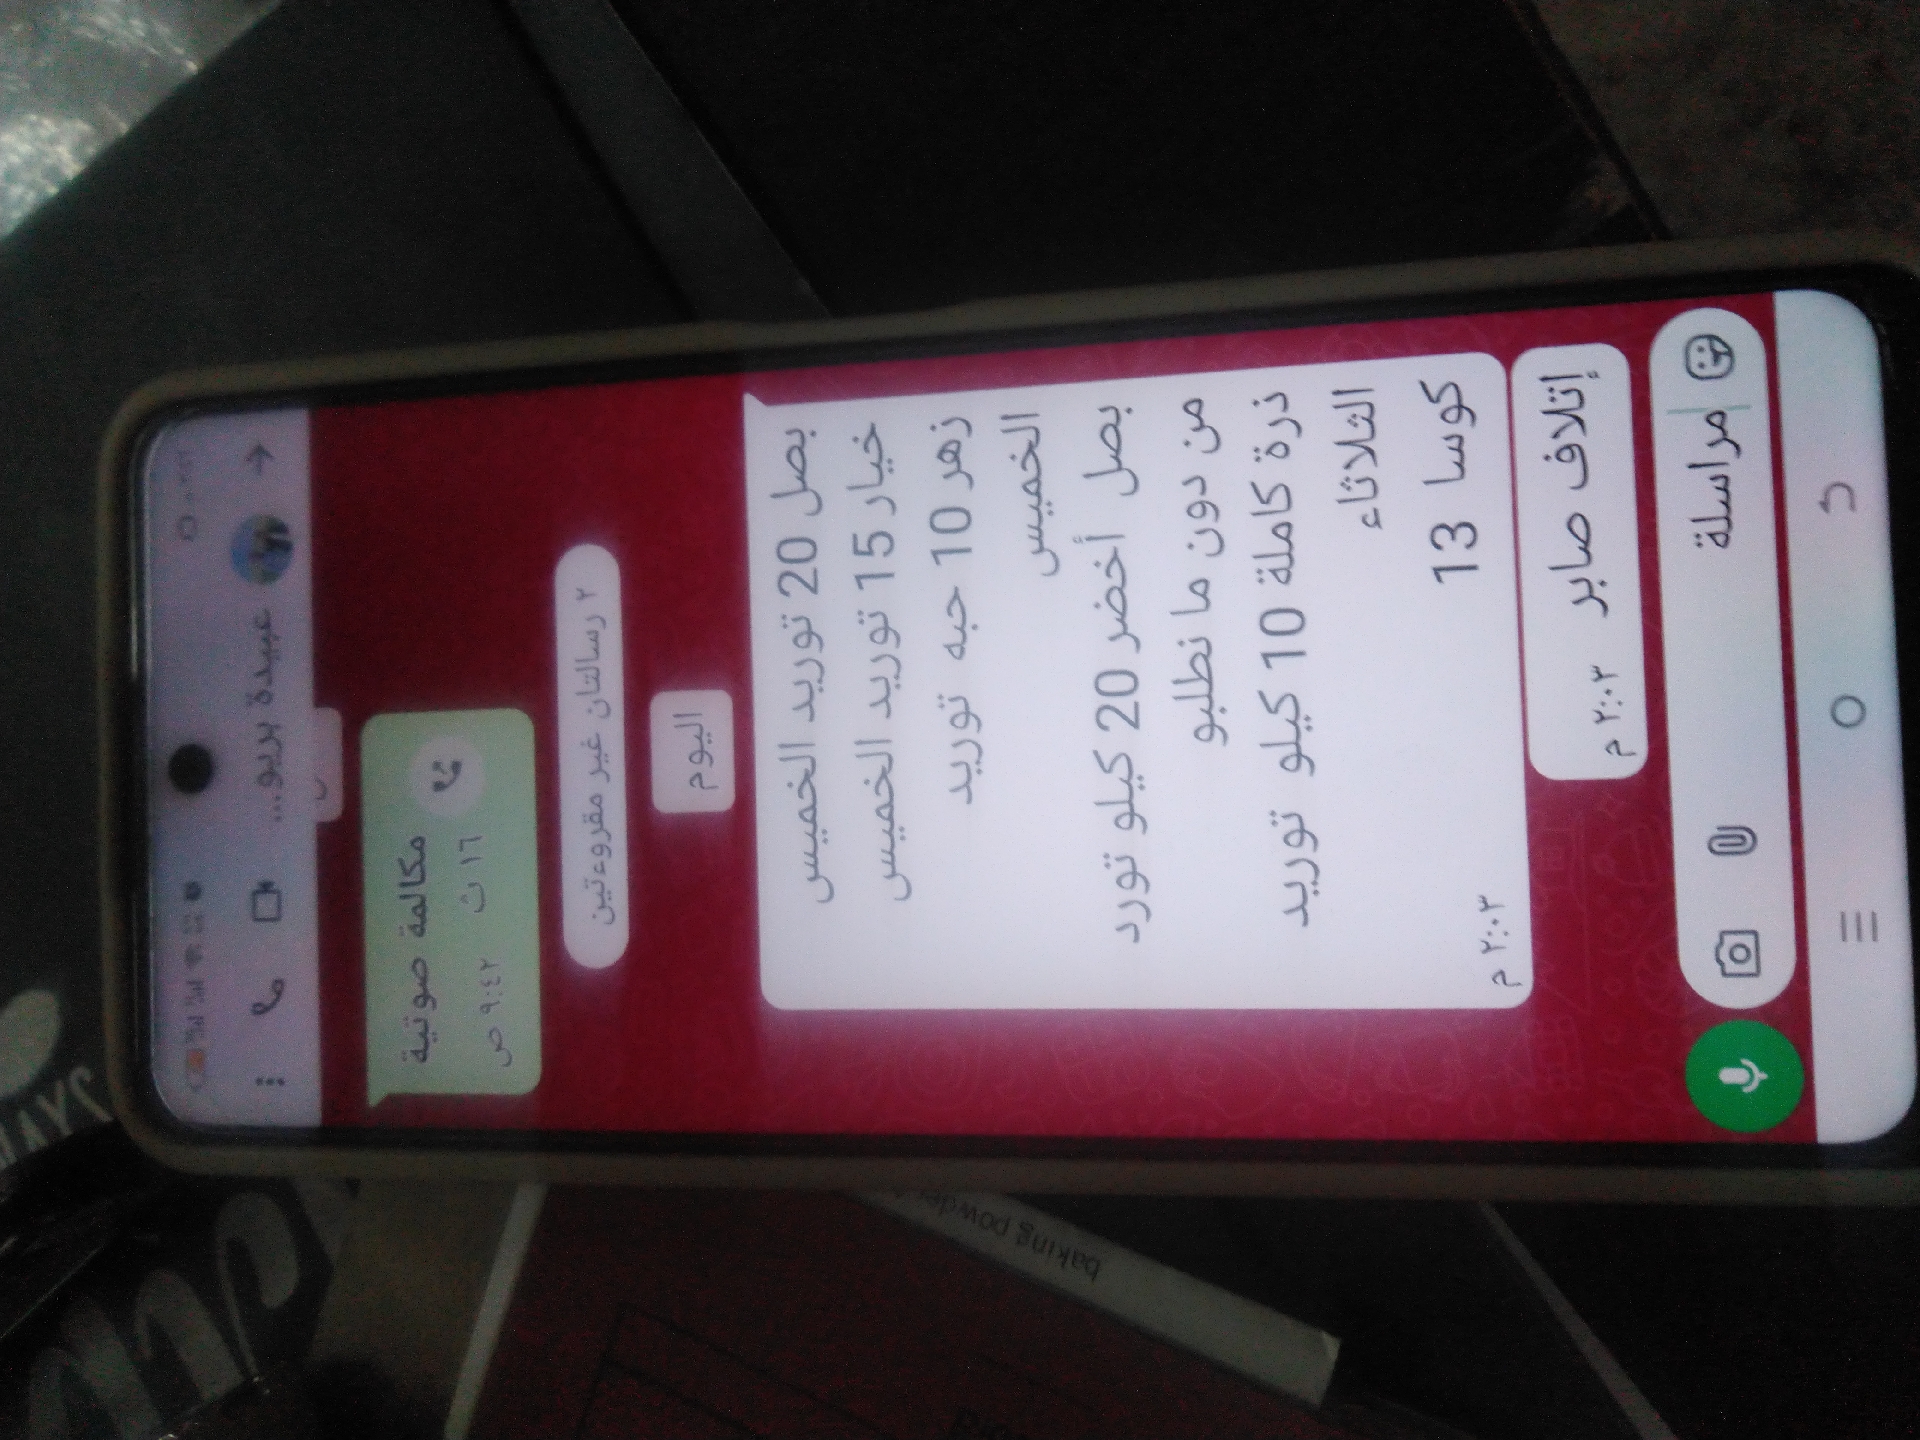 عبيدة بريو...
مكالمة صوتية
١٦ ث
٩:٤٢ ص
٢ رسالتان غير مقروءتين
اليوم
بصل 20 توريد الخميس
خيار 15 توريد الخميس
زهر 10 حبه توريد
الخميس
بصل أخضر 20 كيلو تورد
من دون ما نطلبو
ذرة كاملة 10 كيلو توريد
الثلاثاء
كوسا 13
٢:٠٣ م
إتلاف صابر
٢:٠٣ م
مراسلة
baking powder